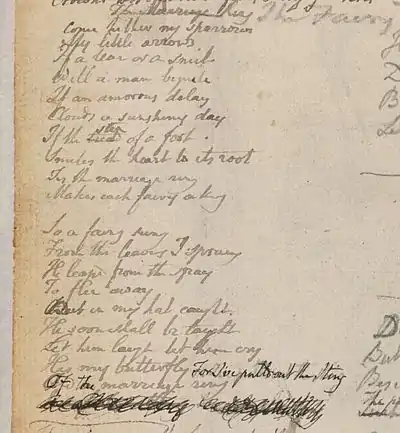 The Marriage Ring The Fairy
Come hither my sparrows
My little arrows
If a tear or a smile
Will a man beguile
If an amorous delay
Clouds a sunshiny day
If the step of a foot
Smites the heart to its root
Tis the marriage ring
Makes each fairy a king
So a fairy sung
From the leaves I sprung
He leapd from the spray
To flee away
But in my hat caught
He soon shall be taught
Let him laugh let him cry
Hes my butterfly For I've pulld out the Sting
Of the marriage ring